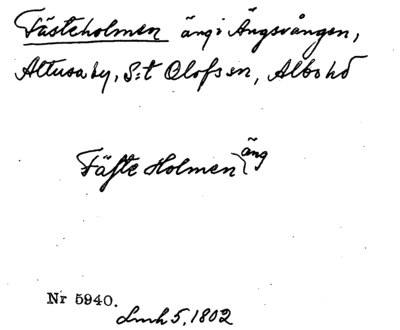 Fästeholmen äng i Ängsvången,
Altusaby, S:t Olofs sn, Albo hd
Fäste Holmen äng
Nr 5940.
Lmh 5, 1802